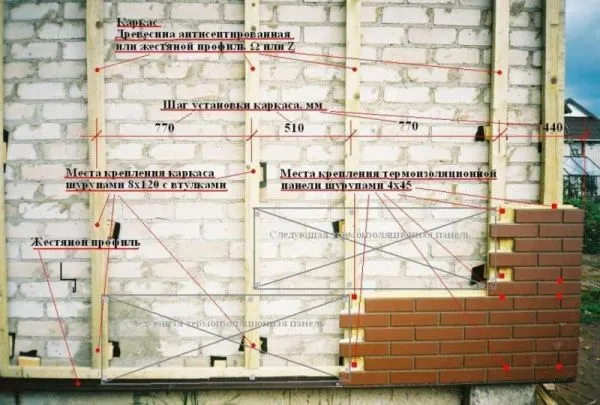 Каркас
Древесина антисептированная
или жестяной профиль Ω или Z
Шаг установки каркаса, мм
770 510 770 440
Места крепления каркаса
шурупами 8х120 с втулками
Места крепления термоизоляционной
панели шурупами 4х45
Жестяной профиль
Следующая термоизоляционная панель
термоизоляционная панель